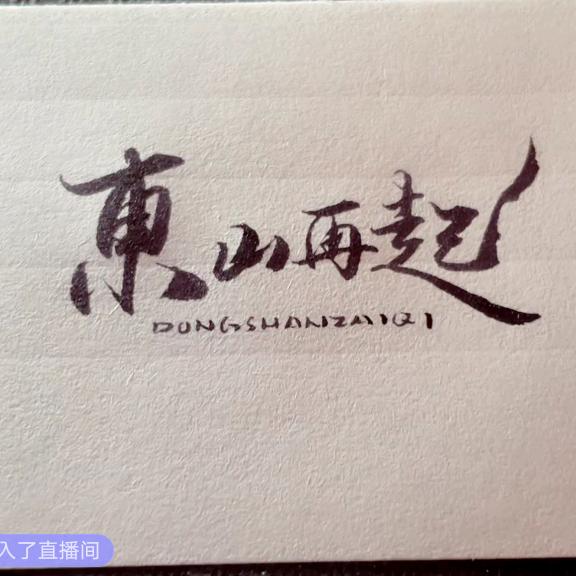 東山再起
DONGSHANZAIQI
入了直播间